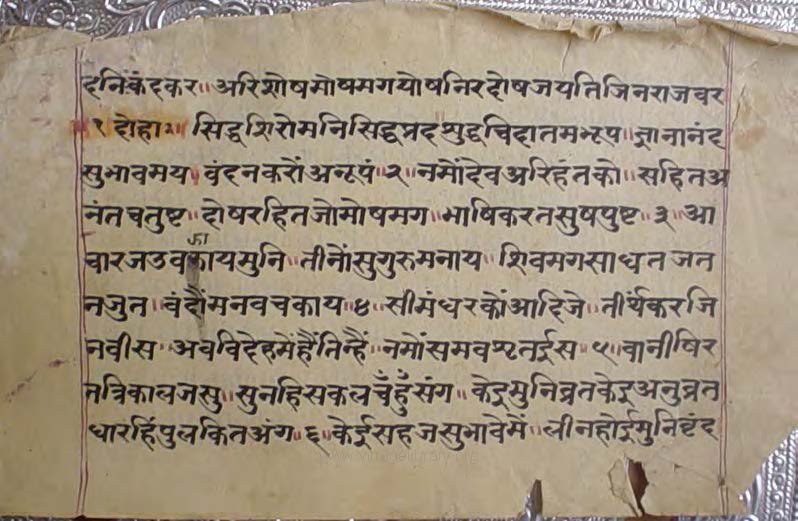 दनिकंदकर॥अरिशोषमोषमगपोषनिरदोषजयतिजिनराजवर
१दोहा॥सिद्धशिरोमनिसिद्धप्रदशुद्धचिदातमभूप॥ज्ञानानंद
सुभावमय॥वंदनकरौंअनूपं॥२॥नमौंदेवअरिहंतको॥सहितअ
नंतचतुष्ट॥दोषरहितजोमोषमग॥भाषिकरतसुषपुष्ट॥३॥आ
चारजउवझायमुनि॥तीनौंसुगुरुमनाय॥शिवमगसाधतजत
नजुत॥वंदौंमनवचकाय॥४॥सीमंधरकोंआदिजे॥तीर्थकरजि
नवीस॥अवविदेहमेंहैंतिन्हैं॥नमोंसमवशृतईस॥५॥वानीषिर
तत्रिकालजसु॥सुनहिसकलचँहुँसंग॥केइमुनिव्रतकेइअनुव्रत
धारहिंपुलकितअंग॥६॥केईसहजसुभावमें॥लीनहोईमुनिवृंद